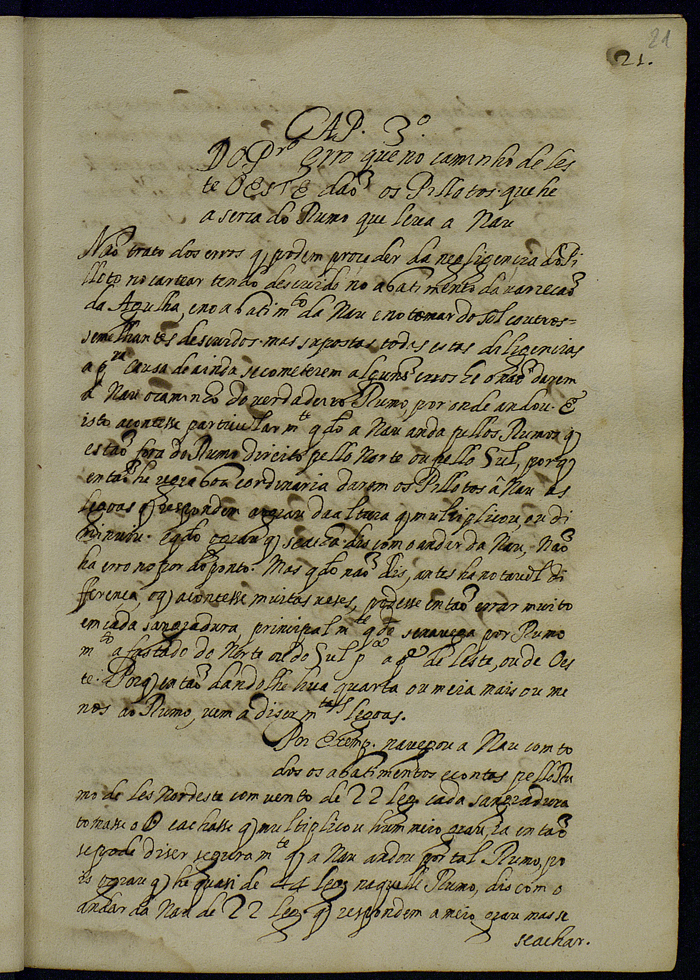 21
21.
CAP. 3.º
DO Pr.º Erro que no caminho de les
te OESTE daõ os Pillotos. que he
a serca do Rumo que leua a Nau
Naõ trato dos erros q̃ podem proceder da negligencia do Pi
lloto no cartear tendo descuido no abatimento da variecaõ
da Agulha, e no abatim.to da Nau e no tomar do sol e outros=
semelhantes descuidos. mas supostas todas estas diligencias
a pr.ª causa de ainda se cometerem alguns erros he o naõ darem
a Nau o caminho do verdadeiro Rumo, por onde andou. E
isto acontesse particularm.te q̃do a Nau anda pellos Rumos q̃
estaõ fora do Rumo direito pello Norte ou pello Sul, porq̃
entaõ he regra boa e ordinaria darem os Pillotos â Nau as
legoas q̃ respondem o grau da altura q̃ multiplicou, ou di
minuiu. e q̃do o grau q̃ se acha dis com o andar da Nau, Naõ
ha erro no por do ponto. Mas q̃do naõ dis, antes ha notauel di
fferença, o q̃ acontesse muitas veses, podesse entaõ errar muito
em cada sangradura, principalm.te q̃do se nauega por Rumo
m.to afastado do Norte ou do Sul p.ª a p.te de leste, ou de Oes
te. Porq̃ entaõ dandolhe hua quarta ou meia mais ou me
nos ao Rumo, vem a diser m.tas legoas.
Por Exemp. nauegou a Nau com to
dos os abatimentos e contas pello Ru
mo de les Nordeste com vento de 22 leg. cada sangradura
tomasse o sol e achasse q̃ multiplicou hum meio grau, ia entaõ
se pode diser seguram.te q̃ a Nau andou por tal Rumo, po
is o grau q̃ he quasi de 44 leg. naquelle Rumo, dis com o
andar da Nau de 22 leg. q̃ respondem a meio grau mas se
se achar.